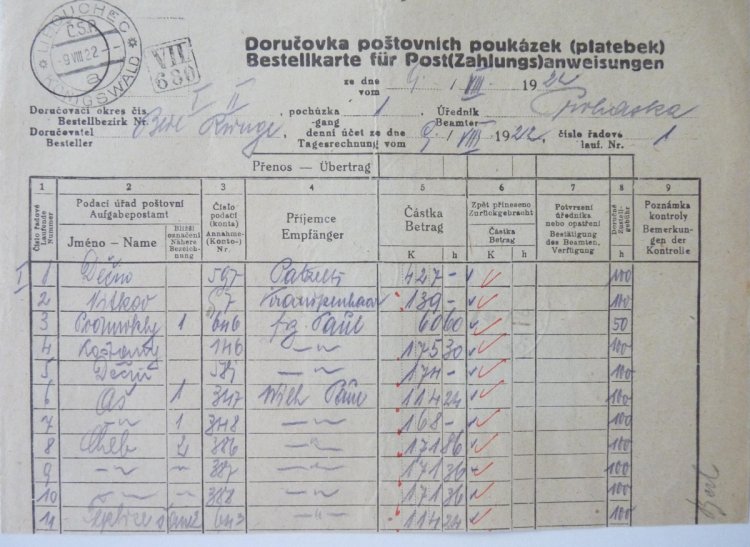 LIBOUCHEC
Č.S.P.
-9.VIII.22.-
a
KÖNIGSWALD
VII
680
Doručovka poštovních poukázek (platebek)
Bestellkarte für Post(Zahlungs)anweisungen
ze dne
vom 9. / VIII. 1922
Doručovací okres čís. I II pochůzka 1 Úředník
Bestellbezirk Nr. -gang Beamter
Doručovatel denní účet ze dne 9. / VIII 1922. číslo řadové 1
Besteller Tagesrechnung vom lauf. Nr.
Přenos — Übertrag
1 2 3 4 5 6 7 8 9
Číslo řadové Laufende Nummer
Podací úřad poštovní
Aufgabepostamt
Jméno - Name
Bližší označení Nähere Bezeichnung
Číslo podací (konta) Annahme- (Konto-) Nr.
Příjemce
Empfänger
Částka
Betrag
K h
Zpět přineseno
Zurückgebracht
Částka
Betrag
K h
Potvrzení úředníka nebo opatření
Bestätigung des Beamten, Verfügung
Doručné Zustellgebühr
h
Poznámka kontroly
Bemerkungen der Kontrolle
I 1 Děčín 597 427 - 100
2 57 139 - 100
3 1 646 fg. Paul 60 60 50
4 146 -〃- 175 30 100
5 Děčín -〃- 174 - 100
6 Aš 1 347 Wilh Paul 114 24 100
7 -〃- 1 348 -〃- 168 - 100
8 Cheb 2 386 -〃- 171 86 100
9 -〃- 387 -〃- 171 36 100
10 -〃- 388 -〃- 171 36 100
11 Teplice 2 643 -〃- 114 24 100